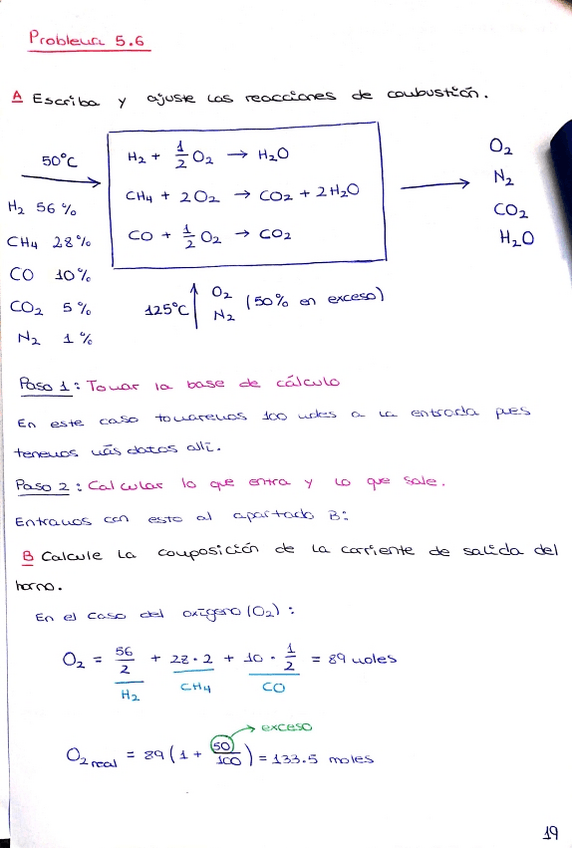 Problema 5.6
A Escriba y ajuste las reacciones de combustión.
50°C
H2 56 %
CH4 28 %
CO 10 %
CO2 5 %
N2 1 %
H2 + 1/2 O2 → H2O
CH4 + 2O2 → CO2 + 2H2O
CO + 1/2 O2 → CO2
O2
N2
CO2
H2O
125°C
O2
N2
(50% en exceso)
Paso 1: Tomar la base de cálculo
En este caso tomaremos 100 moles a la entrada pues
tenemos más datos allí.
Paso 2: Calcular lo que entra y lo que sale.
Entramos con esto al apartado B:
B Calcule la composición de la corriente de salida del
horno.
En el caso del oxígeno (O2):
O2 = 56/2 + 28·2 + 10·1/2 = 89 moles
H2 CH4 CO
exceso
O2 real = 89 (1 + 50/100) = 133.5 moles
19